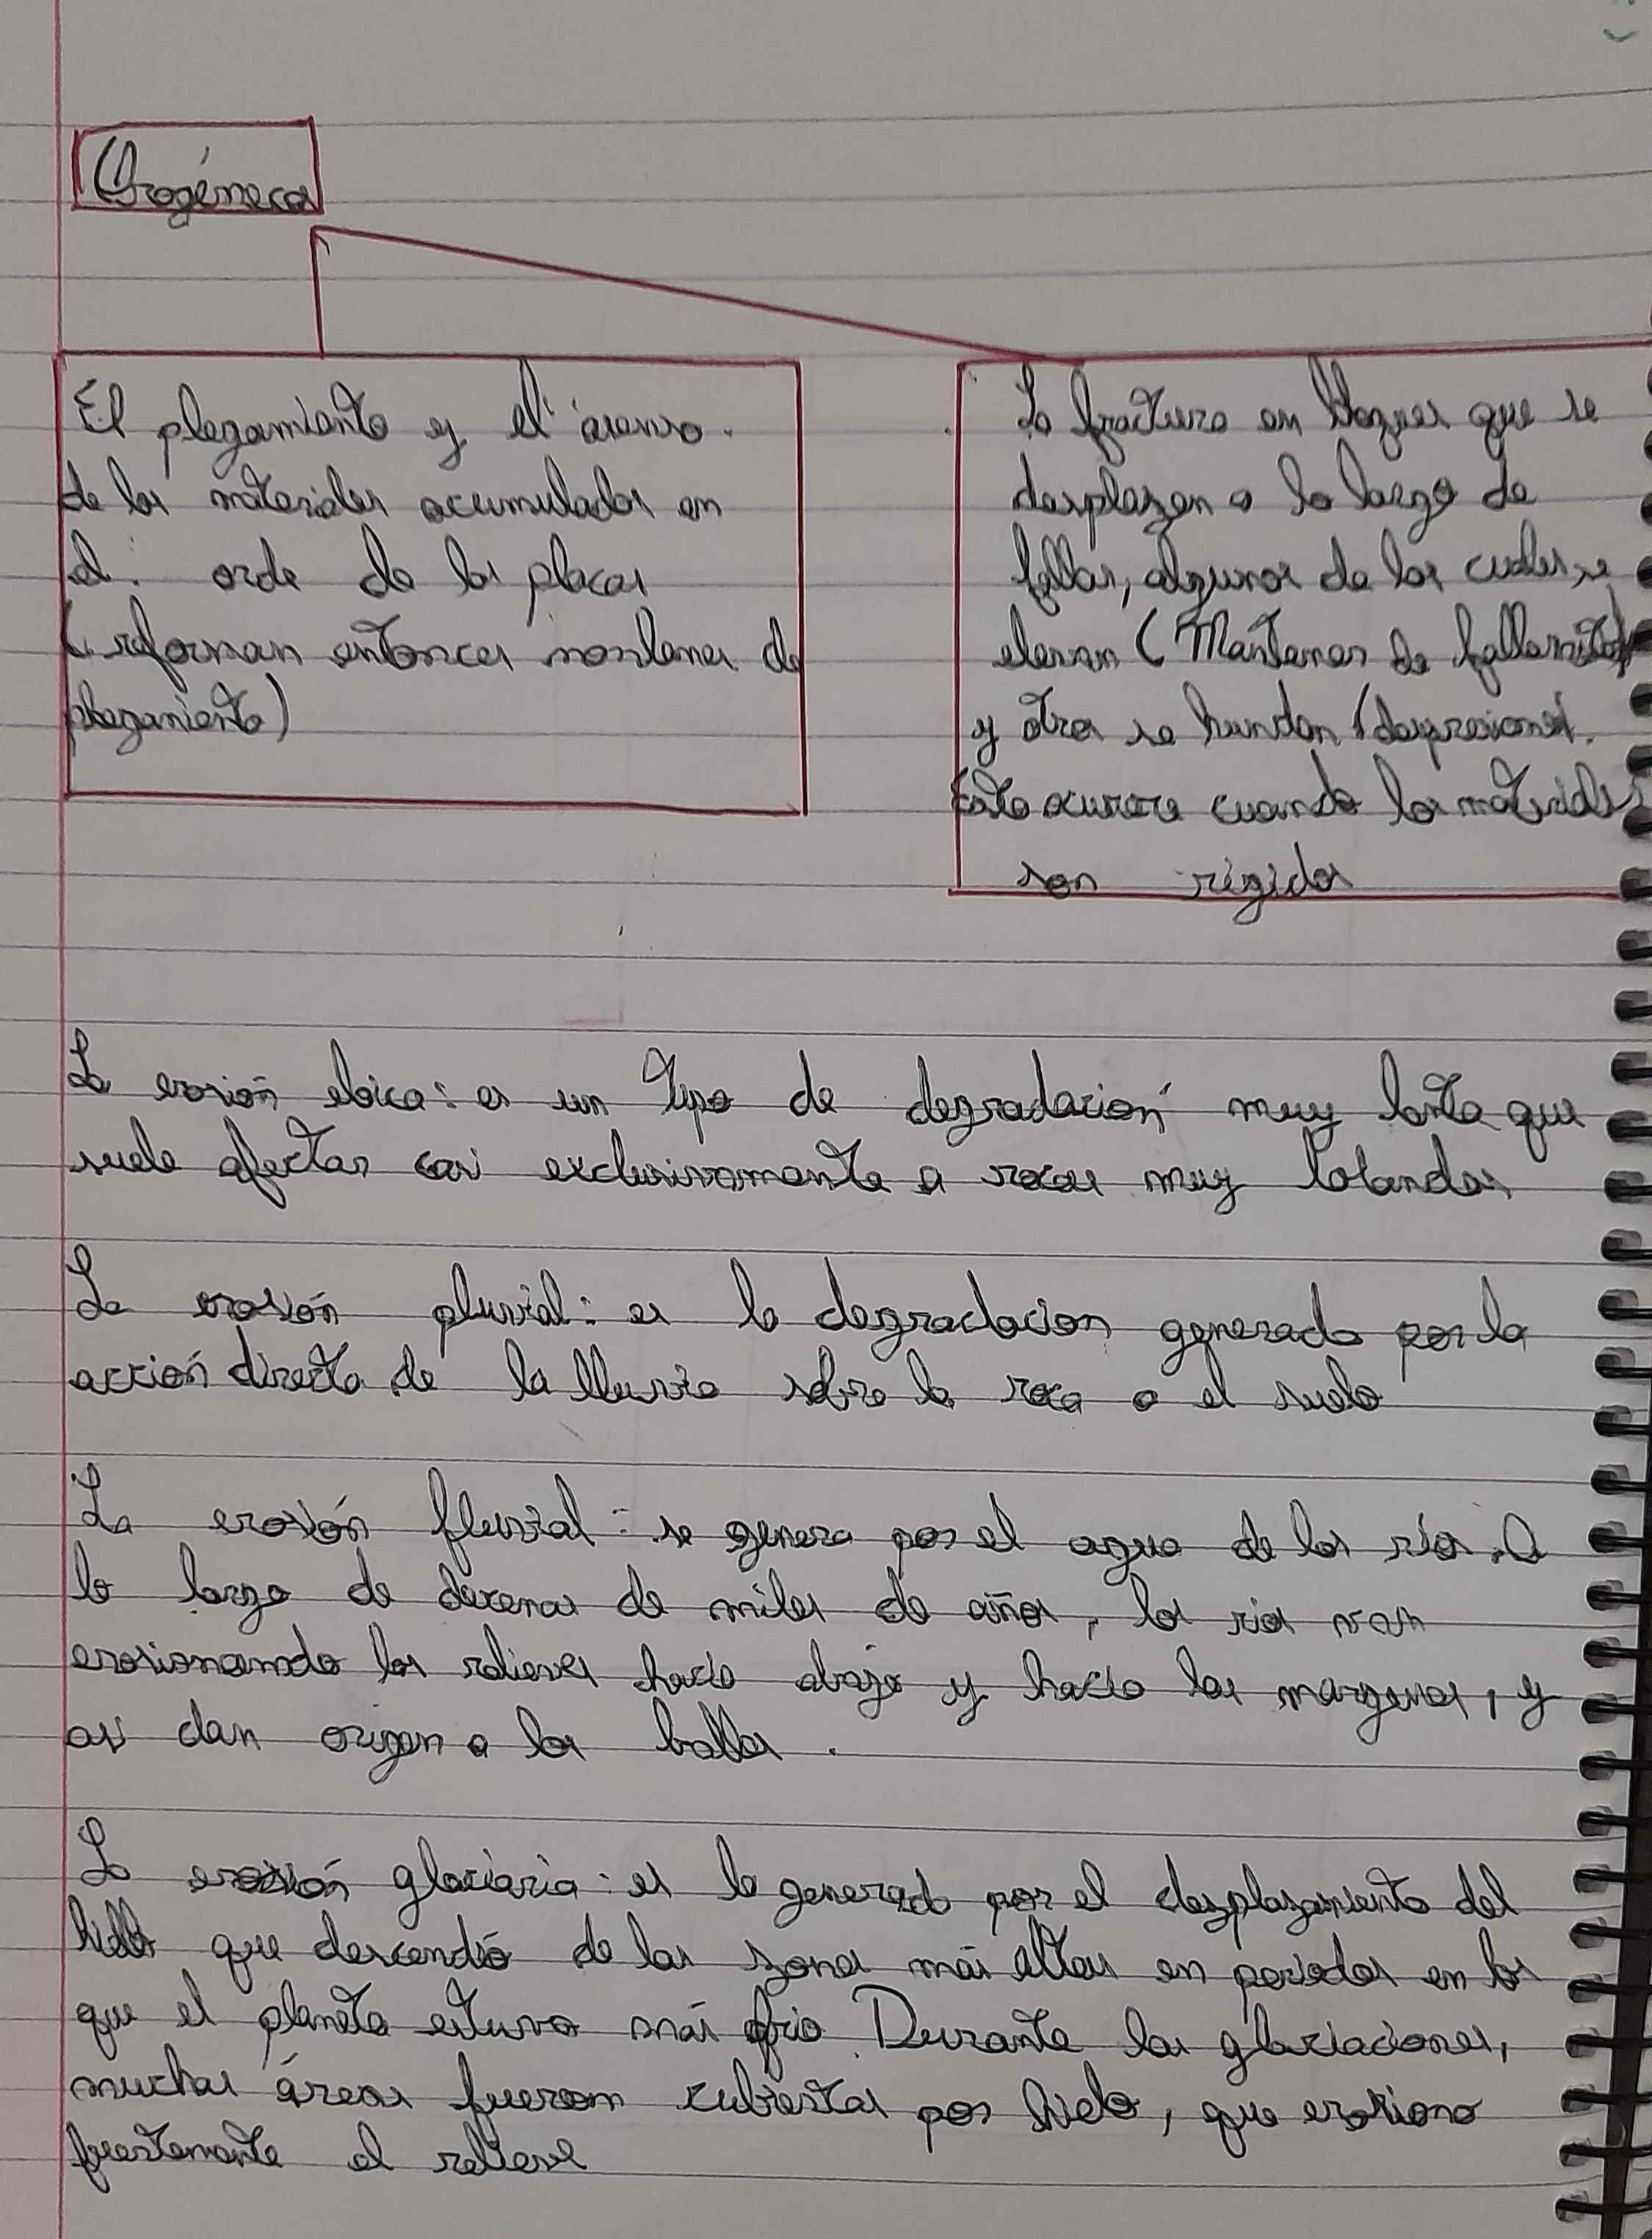 Orogéneca
El plegamiento y el ascenso.
de los materiales acumulados en
el orde de las placas
(reforman entonces montanas de
plegamiento)
La fractura en bloques que se
desplazan a lo largo de
fallas, algunos de los cuales se
elevan (Mantanas de fallamiento)
y otras se hunden (depresiones).
Esto ocurre cuando los materiales
son rigidos
La erosión eloica: es un tipo de degradación muy lenta que
suele afectar casi exclusivamente a rocas muy blandas
La erosión pluvial: es la degradacion generada por la
acción directa de la lluvia sobre la roca o el suelo
La erosión fluvial: se genera por el agua de los ríos. A
lo largo de decenas de miles de años, los rios van
erosionando los relieves hacia abajo y hacia los margenes, y
asi dan origen a los balles.
La erosión glaciaria: es la generada por el desplazamiento del
que descendió de las zonas más altas en periodos en los
que el planeta estuvo más frio. Durante las glaciaciones,
muchas áreas fuerom cubiertas por hielo, que erosiono
fuertemente el relieve